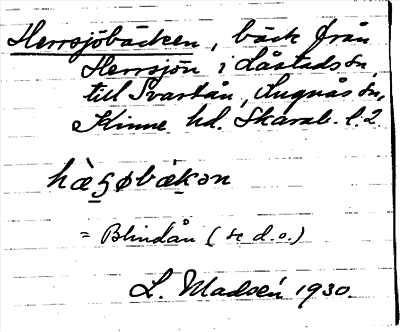 Herrsjöbäcken, bäck från
Herrsjön i Låstads sn
till Svartån, Lugnås sn,
Kinne hd. Skarab. l.
hὰʂøbäkən
= Blindån (se d.o.)
L. Madsén 1930.